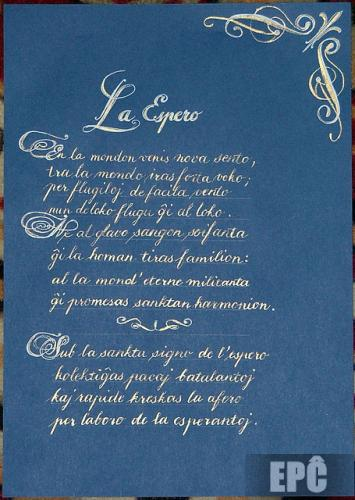 La Espero
En la mondon venis nova sento,
tra la mondo iras forta voko;
per flugiloj de facila vento
nun de loko flugu ĝi al loko.
Ne al glavo sangon soifanta
ĝi la homan tiras familion:
al la mond' eterne militanta
ĝi promesas sanktan harmonion.
Sub la sankta signo de l'espero
kolektiĝas pacaj batalantoj
kaj rapide kreskas la afero
per laboro de la esperantoj.
EPĈ